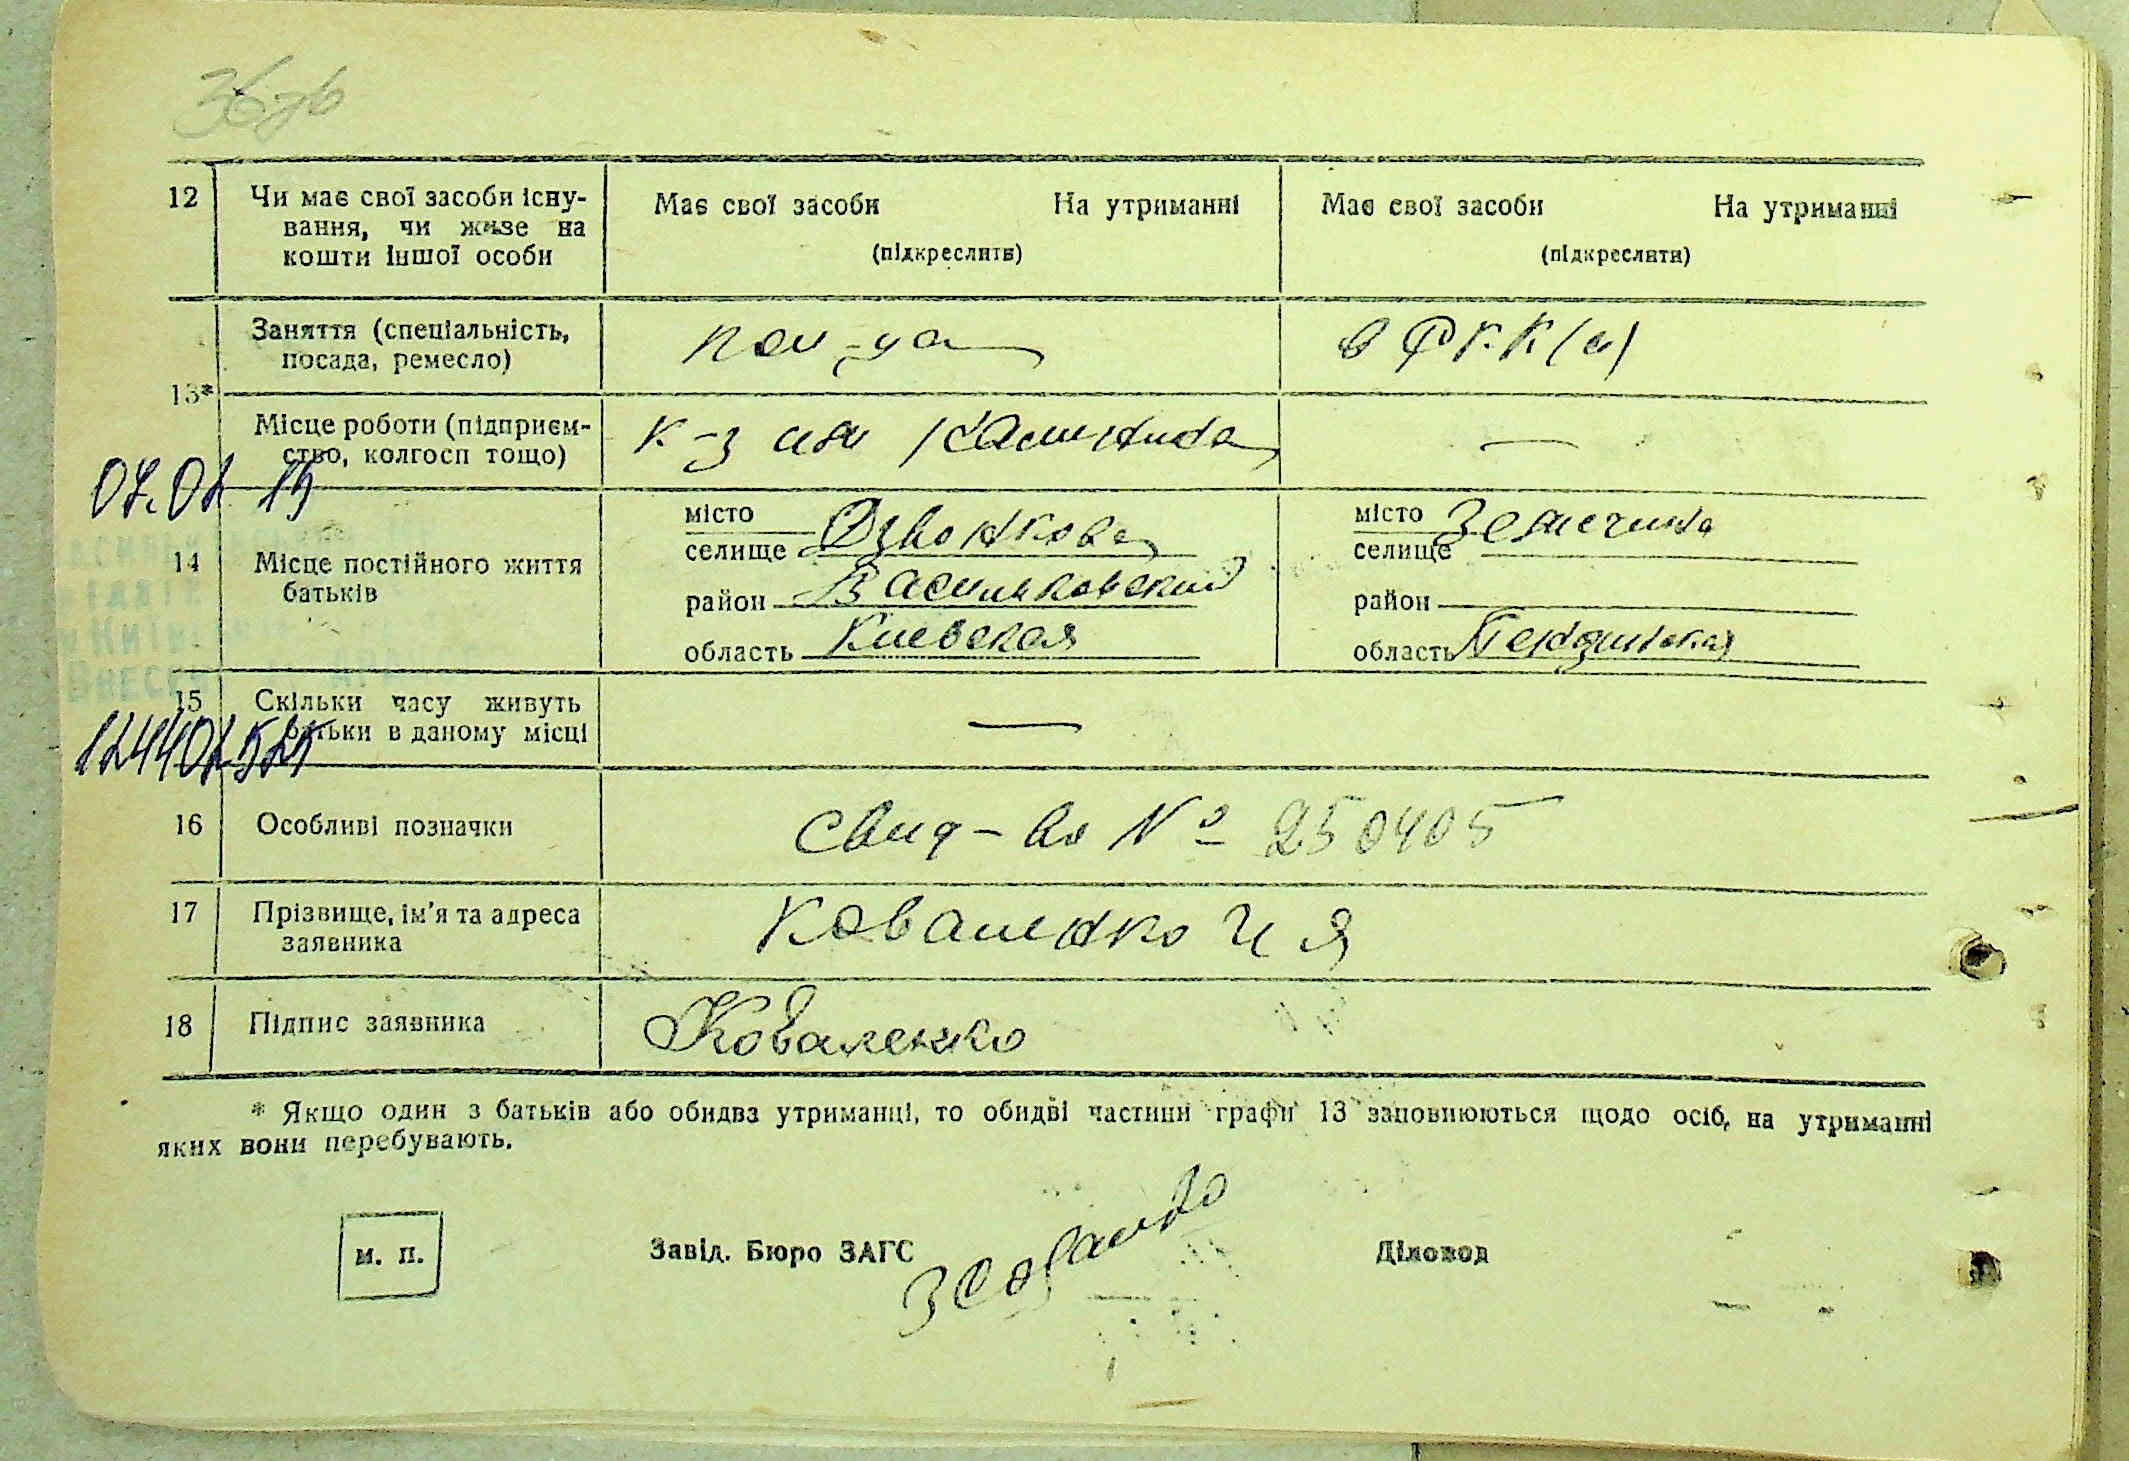 36 зв
12 Чи має свої засоби існу- Має свої засоби На утриманні Має свої засоби На утриманні
вання, чи живе на
кошти іншої особи (підкреслити) (підкреслити)
Заняття (спеціальність, кол-ца в РККА(а)
посада, ремесло)
13*
Місце роботи (підприєм- к-з им Калинина —
ство, колгосп тощо)
07.01 19
місто Дзвонковая місто Земетчино
селище селище
14 Місце постійного життя район Васильковский район
батьків
область Киевская область Пензинская
15 Скільки часу живуть —
батьки в даному місці
16 Особливі позначки Свид-во № 250405
17 Прізвище, ім'я та адреса Коваленко И Я
заявника
18 Підпис заявника Коваленко
* Якщо один з батьків або обидва утриманці, то обидві частини графи 13 заповнюються щодо осіб, на утриманні
яких вони перебувають.
м. п. Завід. Бюро ЗАГС Діловод